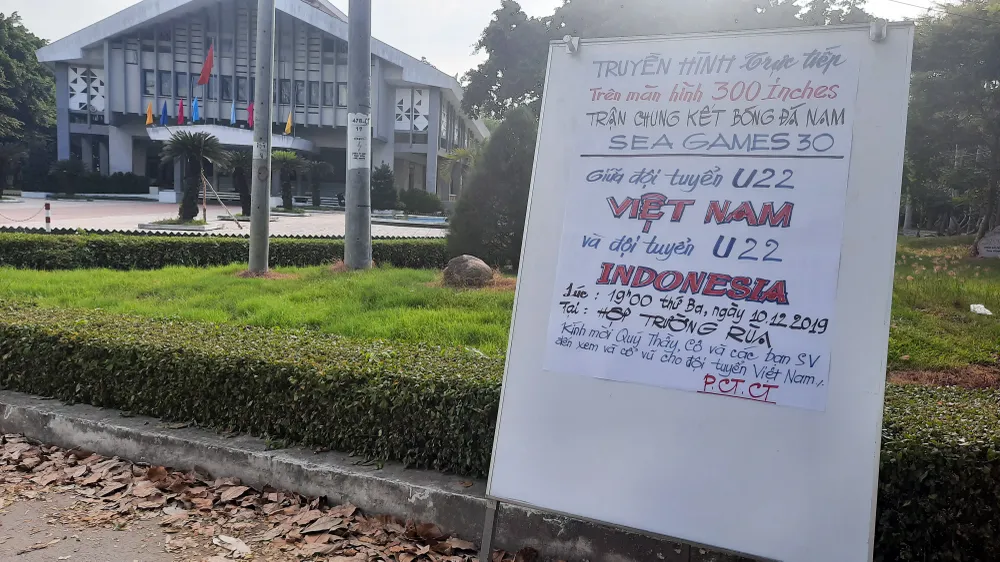 TRUYỀN HÌNH trực tiếp
Trên màn hình 300 Inches
TRẬN CHUNG KẾT BÓNG ĐÁ NAM
SEA GAMES 30
Giữa đội tuyển U22
VIỆT NAM
và đội tuyển U22
INDONESIA
Lúc : 19h00 thứ Ba, ngày 10.12.2019
Tại : HỘI TRƯỜNG RÙA
Kính mời Quý Thầy, Cô và các bạn SV
đến xem và cổ vũ cho đội tuyển Việt Nam /.
P.CT.CT